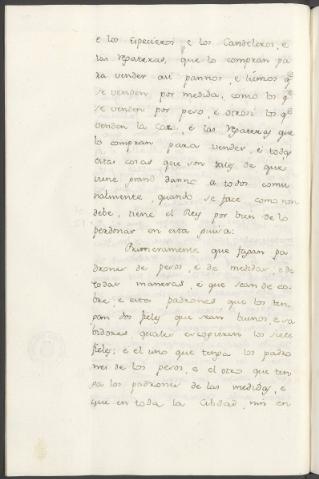 e los Especieros e los Candeleros, e
las Regateras, que lo compran pa
ra vender assi pannos, e lienzos q.e
se venden por medida, como los q.e
se venden por peso, e otrosi los q.e
venden la cal, e las Regateras que
lo compran para vender, e todas
estas cosas que son tales de que
viene grand danno a todos comu
nalmente, quando se face como non
debe, tiene el Rey por bien de lo
perdonar en esta guisa:
Primeramente que fagan pa
drones de pesos, e de medidas, e de
todas maneras, e que sean de co
bre, e estos padrones que los ten
gan dos fieles que sean buenos, e sa
bidores quales escogieren los siete
fieles; e el uno que tenga los padro
nes de los pesos, e el otro que ten
ga los padrones de las medidas, e
que en toda la Cibdad, nin en